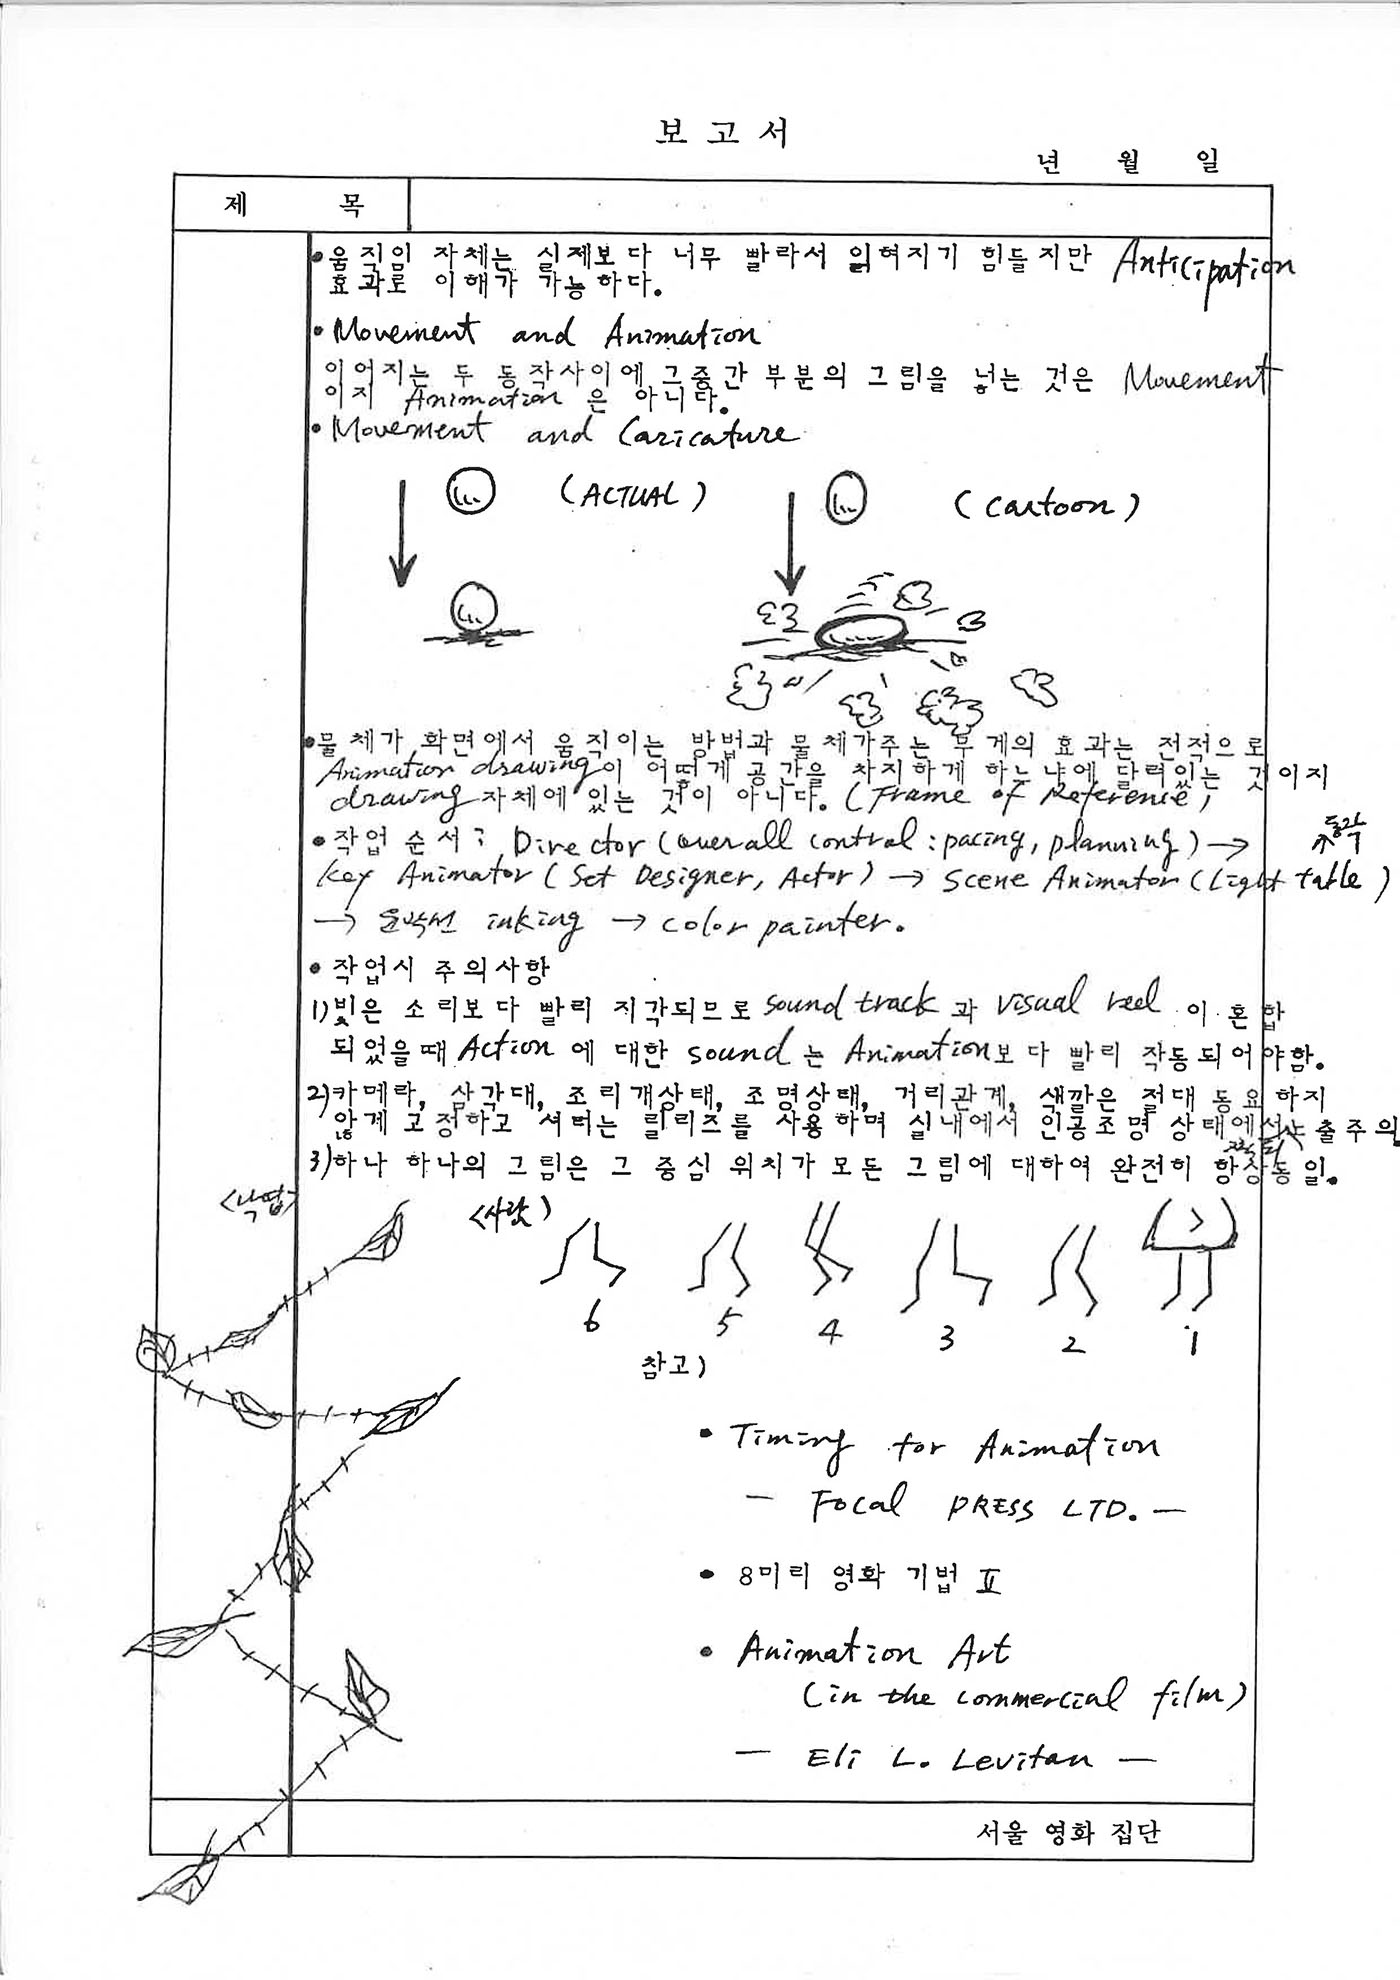 보고서
년 월 일
제 목
• 움직임 자체는 실제보다 너무 빨라서 읽혀지기 힘들지만 Anticipation
효과로 이해가 가능하다.
• Movement and Animation
이어지는 두 동작사이에 그중간 부분의 그림을 넣는 것은 Movement
이지 Animation 은 아니다.
• Movement and Caricature
(ACTUAL) (Cartoon)
• 물체가 화면에서 움직이는 방법과 물체가주는 무게의 효과는 전적으로
Animation drawing이 어떻게 공간을 차지하게 하느냐에 달려있는 것이지
drawing 자체에 있는 것이 아니다. (Frame of Reference)
• 작업 순서 : Director (overall control : pacing, planning) →
Key Animator (Set Designer, Actor) → Scene Animator (Light table)
→ 윤곽선 inking → color painter.
• 작업시 주의사항
1) 빛은 소리보다 빨리 지각되므로 sound track 과 visual reel 이 혼합
되었을때 Action 에 대한 sound 는 Animation보다 빨리 작동되어야함.
2) 카메라, 삼각대, 조리개상태, 조명상태, 거리관계, 색깔은 절대 동요하지
않게 고정하고 셔터는 릴리즈를 사용하며 실내에서 인공조명 상태에서 노출주의
3) 하나 하나의 그림은 그 중심 위치가 모든 그림에 대하여 완전히 항상동일.
<낙엽>
<사람>
6 5 4 3 2 1
참고)
• Timing for Animation
— Focal PRESS LTD. —
• 8미리 영화 기법 Ⅱ
• Animation Art
(in the commercial film)
— Eli L. Levitan —
서울 영화 집단